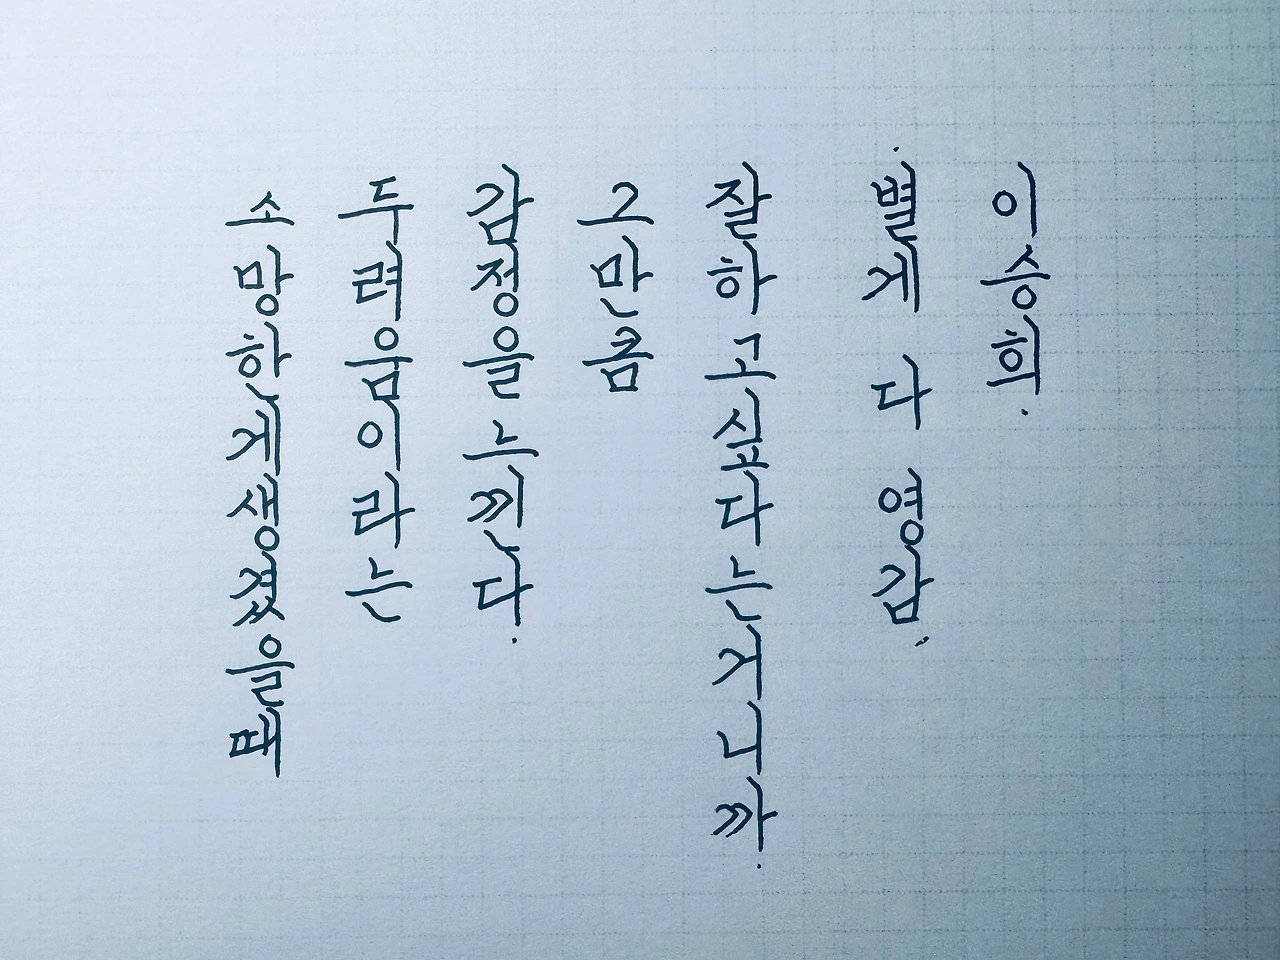 소망한게생겼을때
두려움이라는
감정을느낀다.
그만큼
잘하고싶다는거니까.
'별게 다 영감'
이승희.